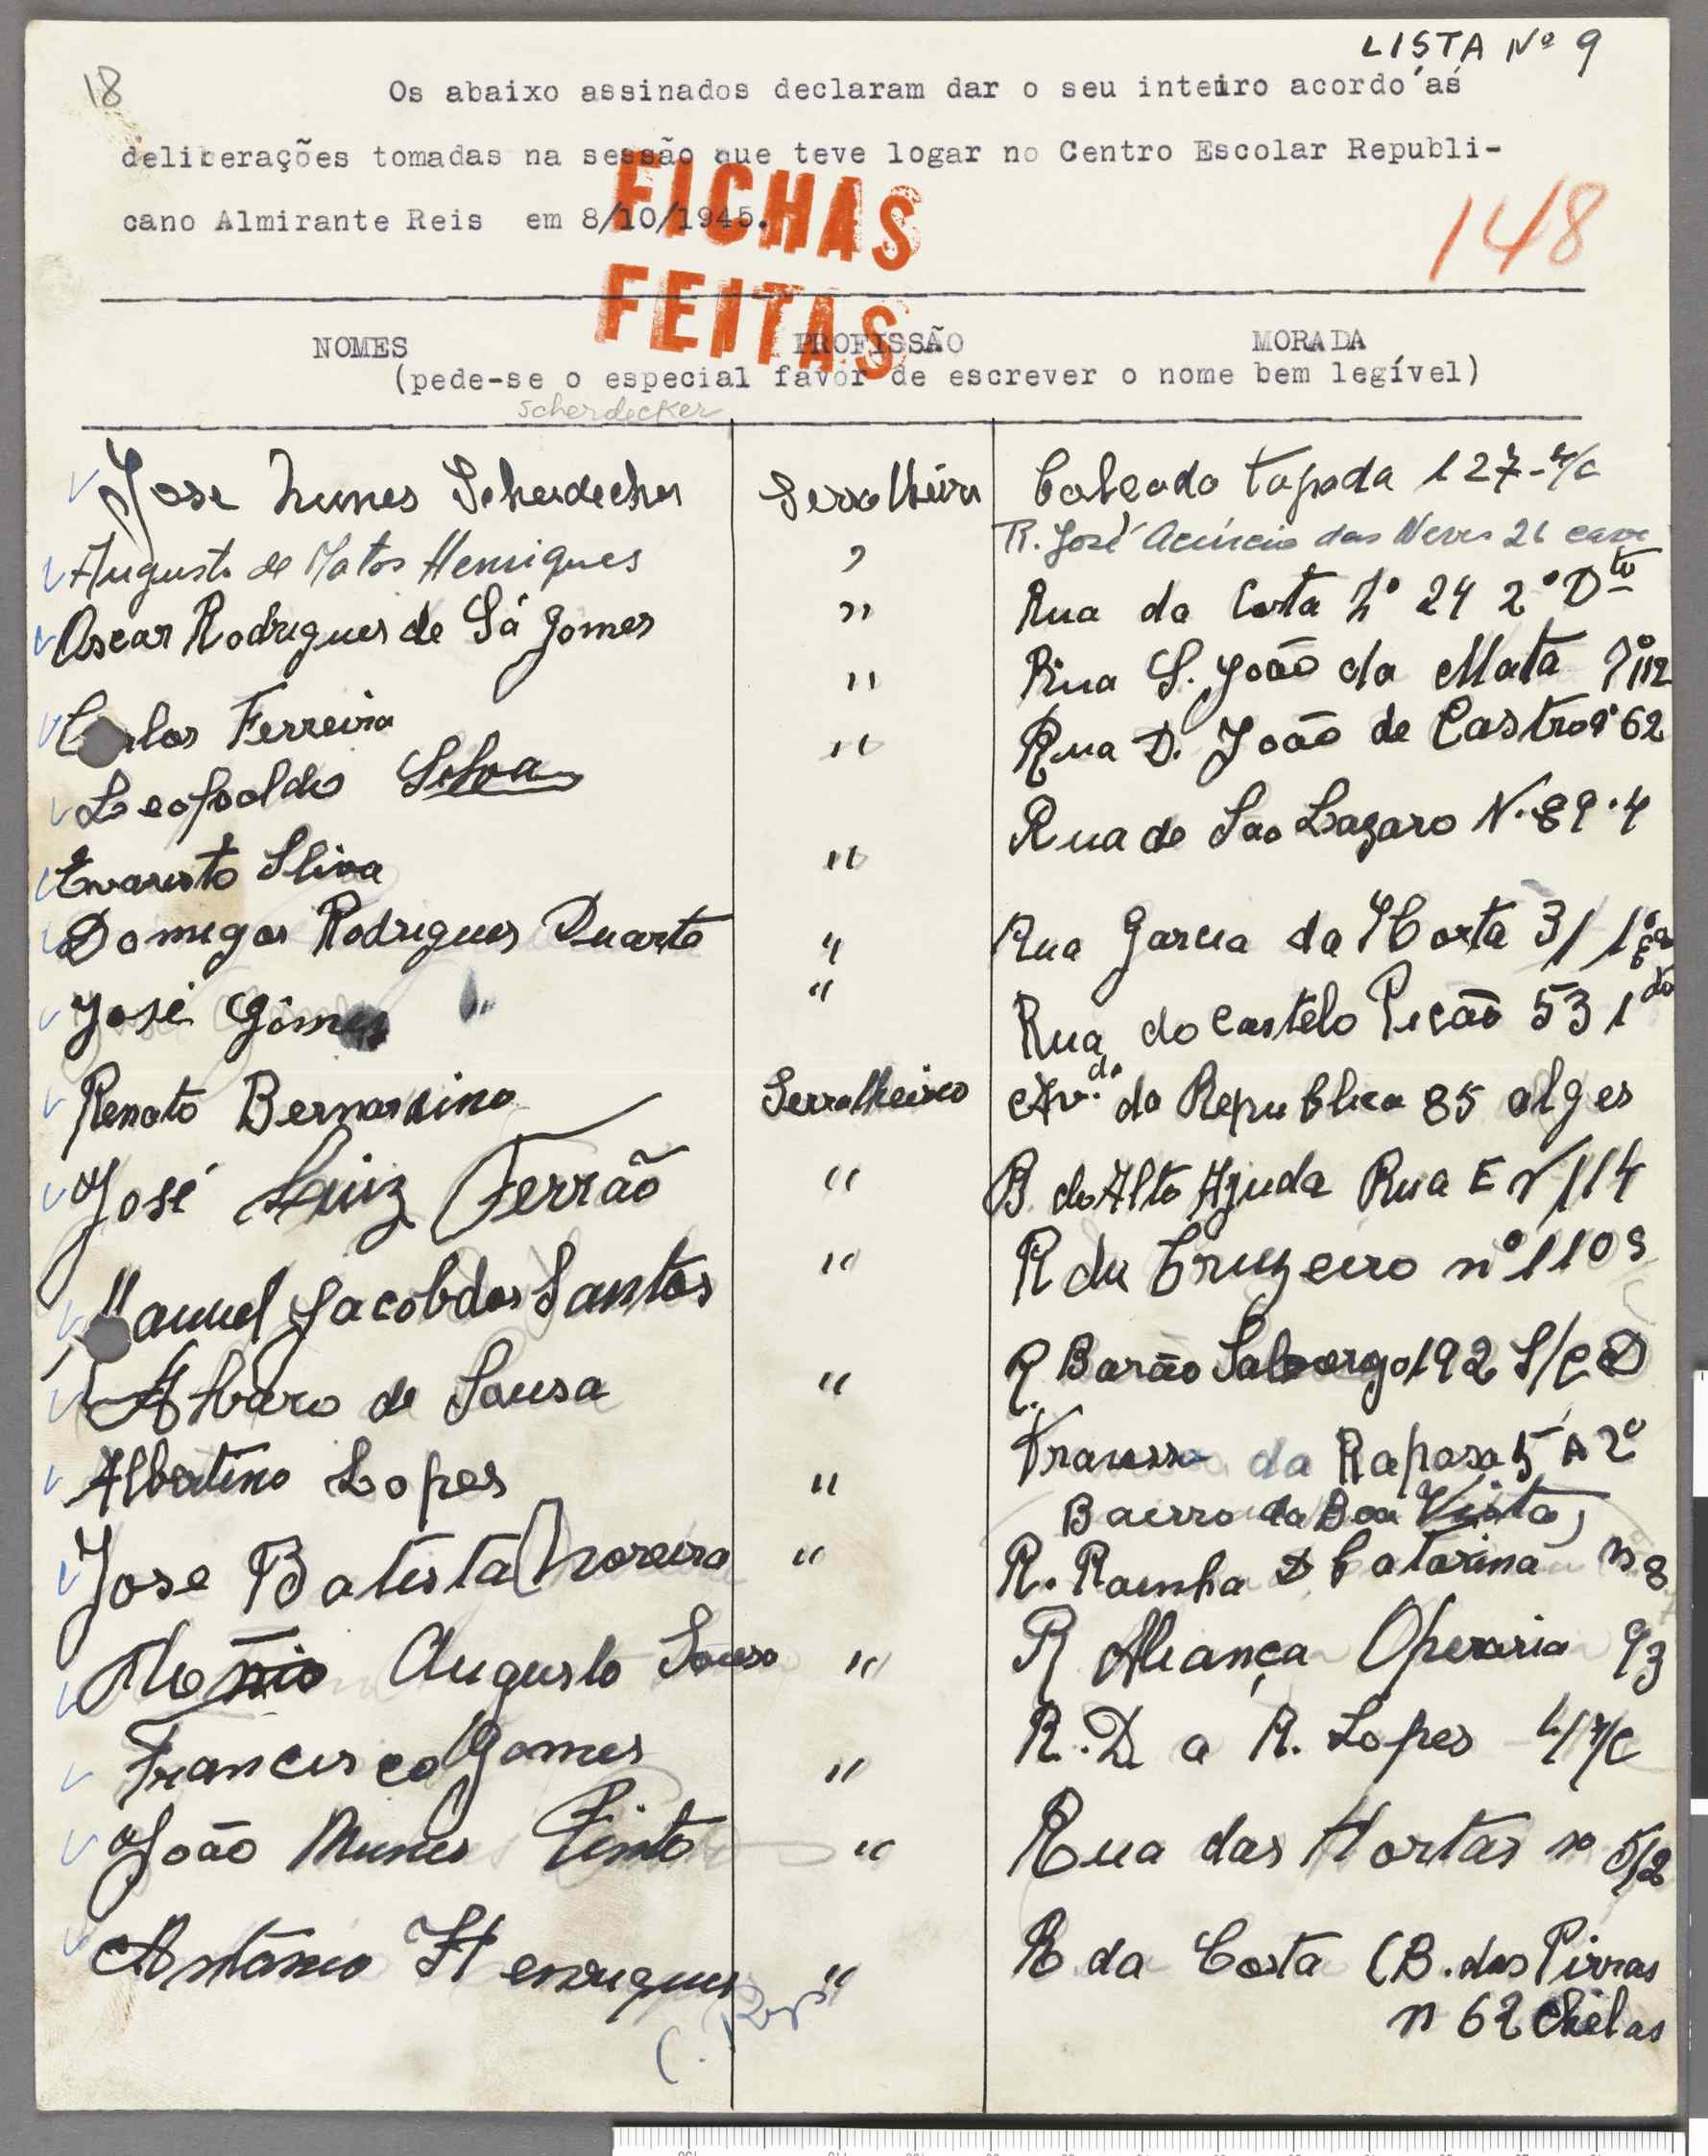 LISTA Nº 9
18
Os abaixo assinados declaram dar o seu inteiro acordo ás
deliberações tomadas na sessão que teve logar no Centro Escolar Republi-
cano Almirante Reis em 8/10/1945.
FICHAS
FEITAS
148
NOMES PROFISSÃO MORADA
(pede-se o especial favor de escrever o nome bem legível)
Scherdecker
Jose Nunes Scherdecker Serralheiro Calcada tapada 127-r/c
Augusto de Matos Henriques " R. José Acúrcio das Neves 26 cave
Oscar Rodrigues de Sá Gomes " Rua da Costa Nº 24 2º Dto
Carlos Ferreira " Rua S. João da Mata
Leopoldo Silva " Rua D. João de Castro nº 62
Evaristo Sliva " Rua de Sao Lazaro N. 89.4
Domigos Rodrigues Duarte " Rua Garcia da Horta 31 1º
José Gomes " Rua do Castelo Picão 53 1
Renato Bernardino Serralheiro Av. da Republica 85 alges
José Luiz Ferrão " B. do Alto Ajuda Rua E Nº 114
Manuel Jacob dos Santos " R du Cruzeiro nº 110
Alvaro de Sousa " R. Barão Saborgo 192 S/C D
Albertino Lopes " da Raposa 5 A 2º
Bairro da Boa Vista
Jose Batista Moreira " R. Rainha D Catarina nº 8
Augusto Sousa " R Aliança Operaria 93
Francisco Gomes " R. D a R. Lopes 4 r/c
João Nunes Pinto " Rua das Hortas nº 5/2
António Henriques " R da Costa (B. das Pirras
n 62 Chelas